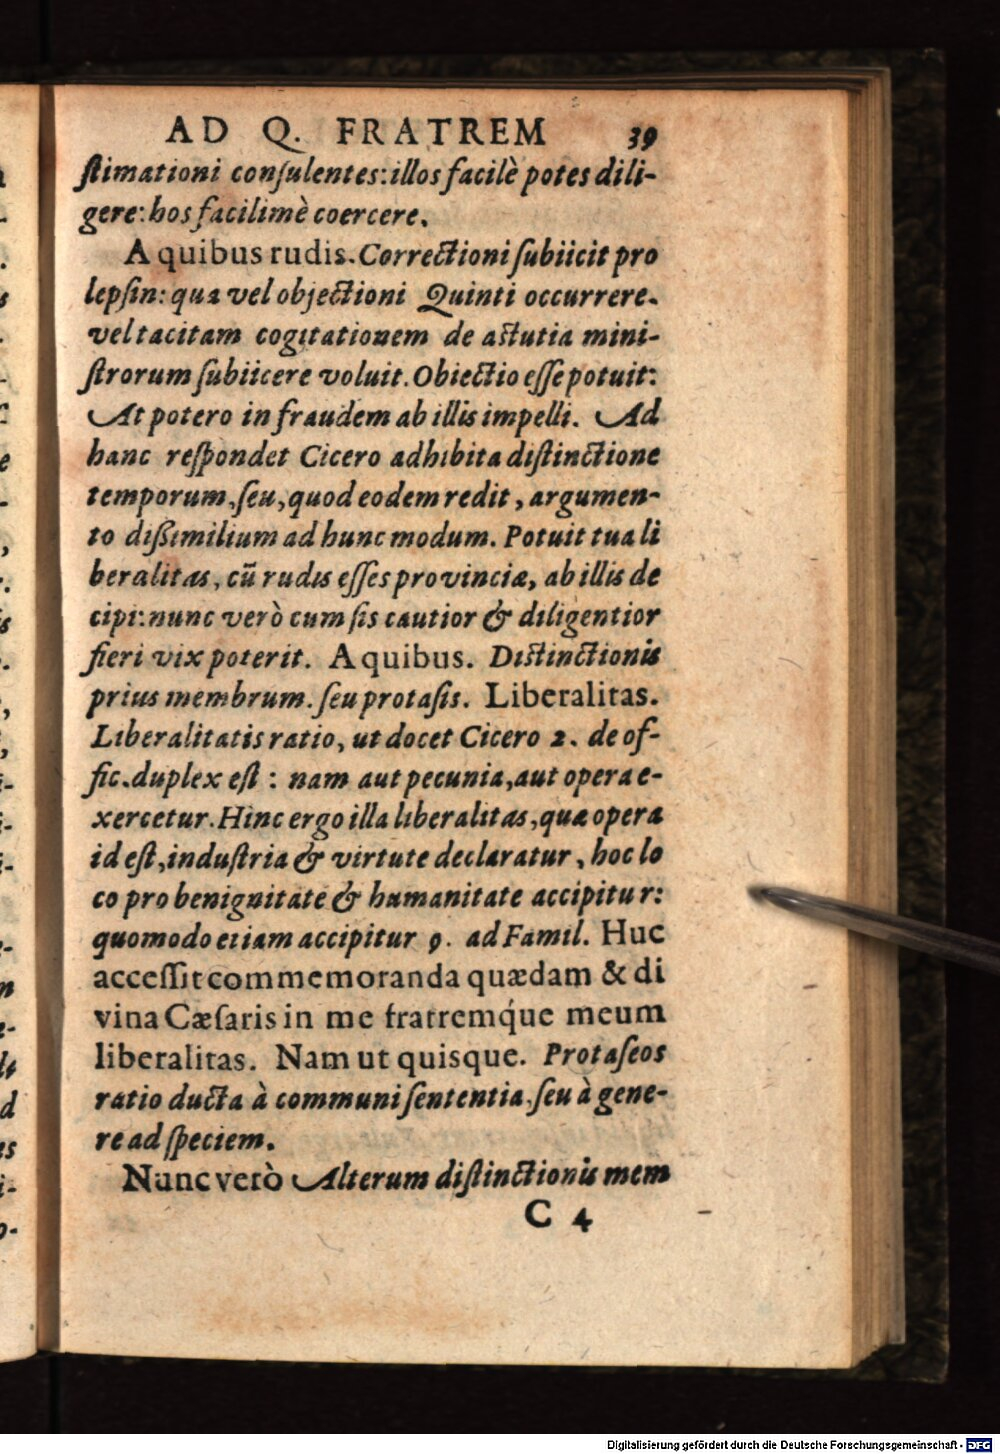 AD Q. FRATREM 39
ſtimationi conſulentes: illos facilè potes dili-
gere: hos facilimè coercere.
A quibus rudis. Correctioni ſubiicit pro
lepſin: qua vel objectioni Quinti occurrere.
vel tacitam cogitationem de aſtutia mini-
ſtrorum ſubiicere voluit. Obiectio eſſe potuit:
At potero in fraudem ab illis impelli. Ad
hanc reſpondet Cicero adhibita diſtinctione
temporum, ſeu, quod eodem redit, argumen-
to dißimilium ad hunc modum. Potuit tua li
beralitas, cũ rudis eſſes provinciæ, ab illis de
cipi: nunc verò cum ſis cautior & diligentior
fieri vix poterit. A quibus. Diſtinctionis
prius membrum. ſeu protaſis. Liberalitas.
Liberalitatis ratio, ut docet Cicero 2. de of-
fic. duplex eſt : nam aut pecunia, aut opera e-
xercetur. Hinc ergo illa liberalitas, quæ opera
id eſt, induſtria & virtute declaratur, hoc lo
co pro benignitate & humanitate accipitur:
quomodo etiam accipitur 9. ad Famil. Huc
acceſſit commemoranda quædam & di
vina Cæſaris in me fratremq́ue meum
liberalitas. Nam ut quisque. Protaſeos
ratio ducta à communi ſententia, ſeu à gene-
re ad ſpeciem.
Nunc verò Alterum diſtinctionis mem
C 4
Digitalisierung gefördert durch die Deutsche Forschungsgemeinschaft - DFG